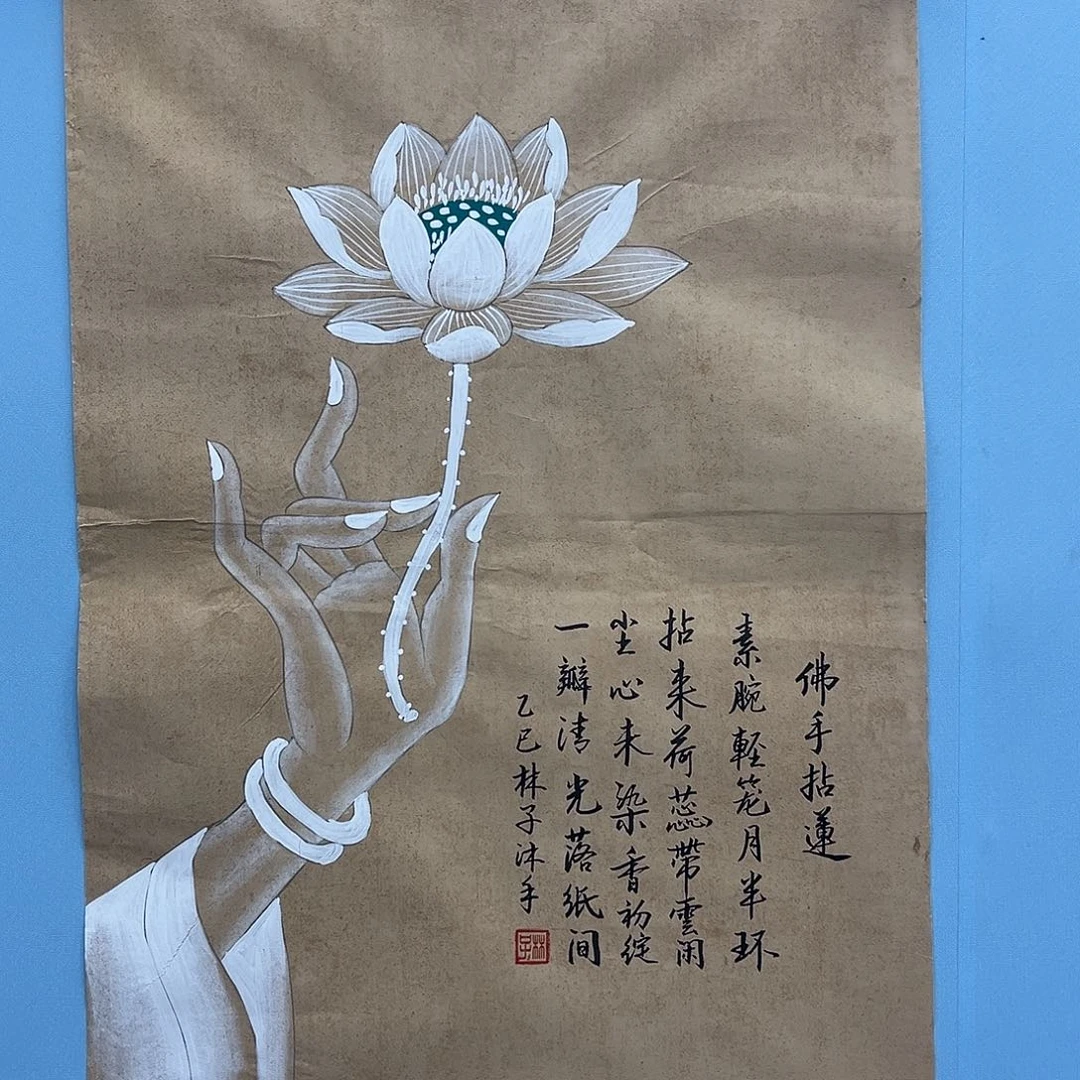 佛手拈蓮
素腕輕笼月半环
拈来荷蕊帶雲闲
尘心未染香初绽
一瓣清光落纸间
乙巳林子沐手
林子